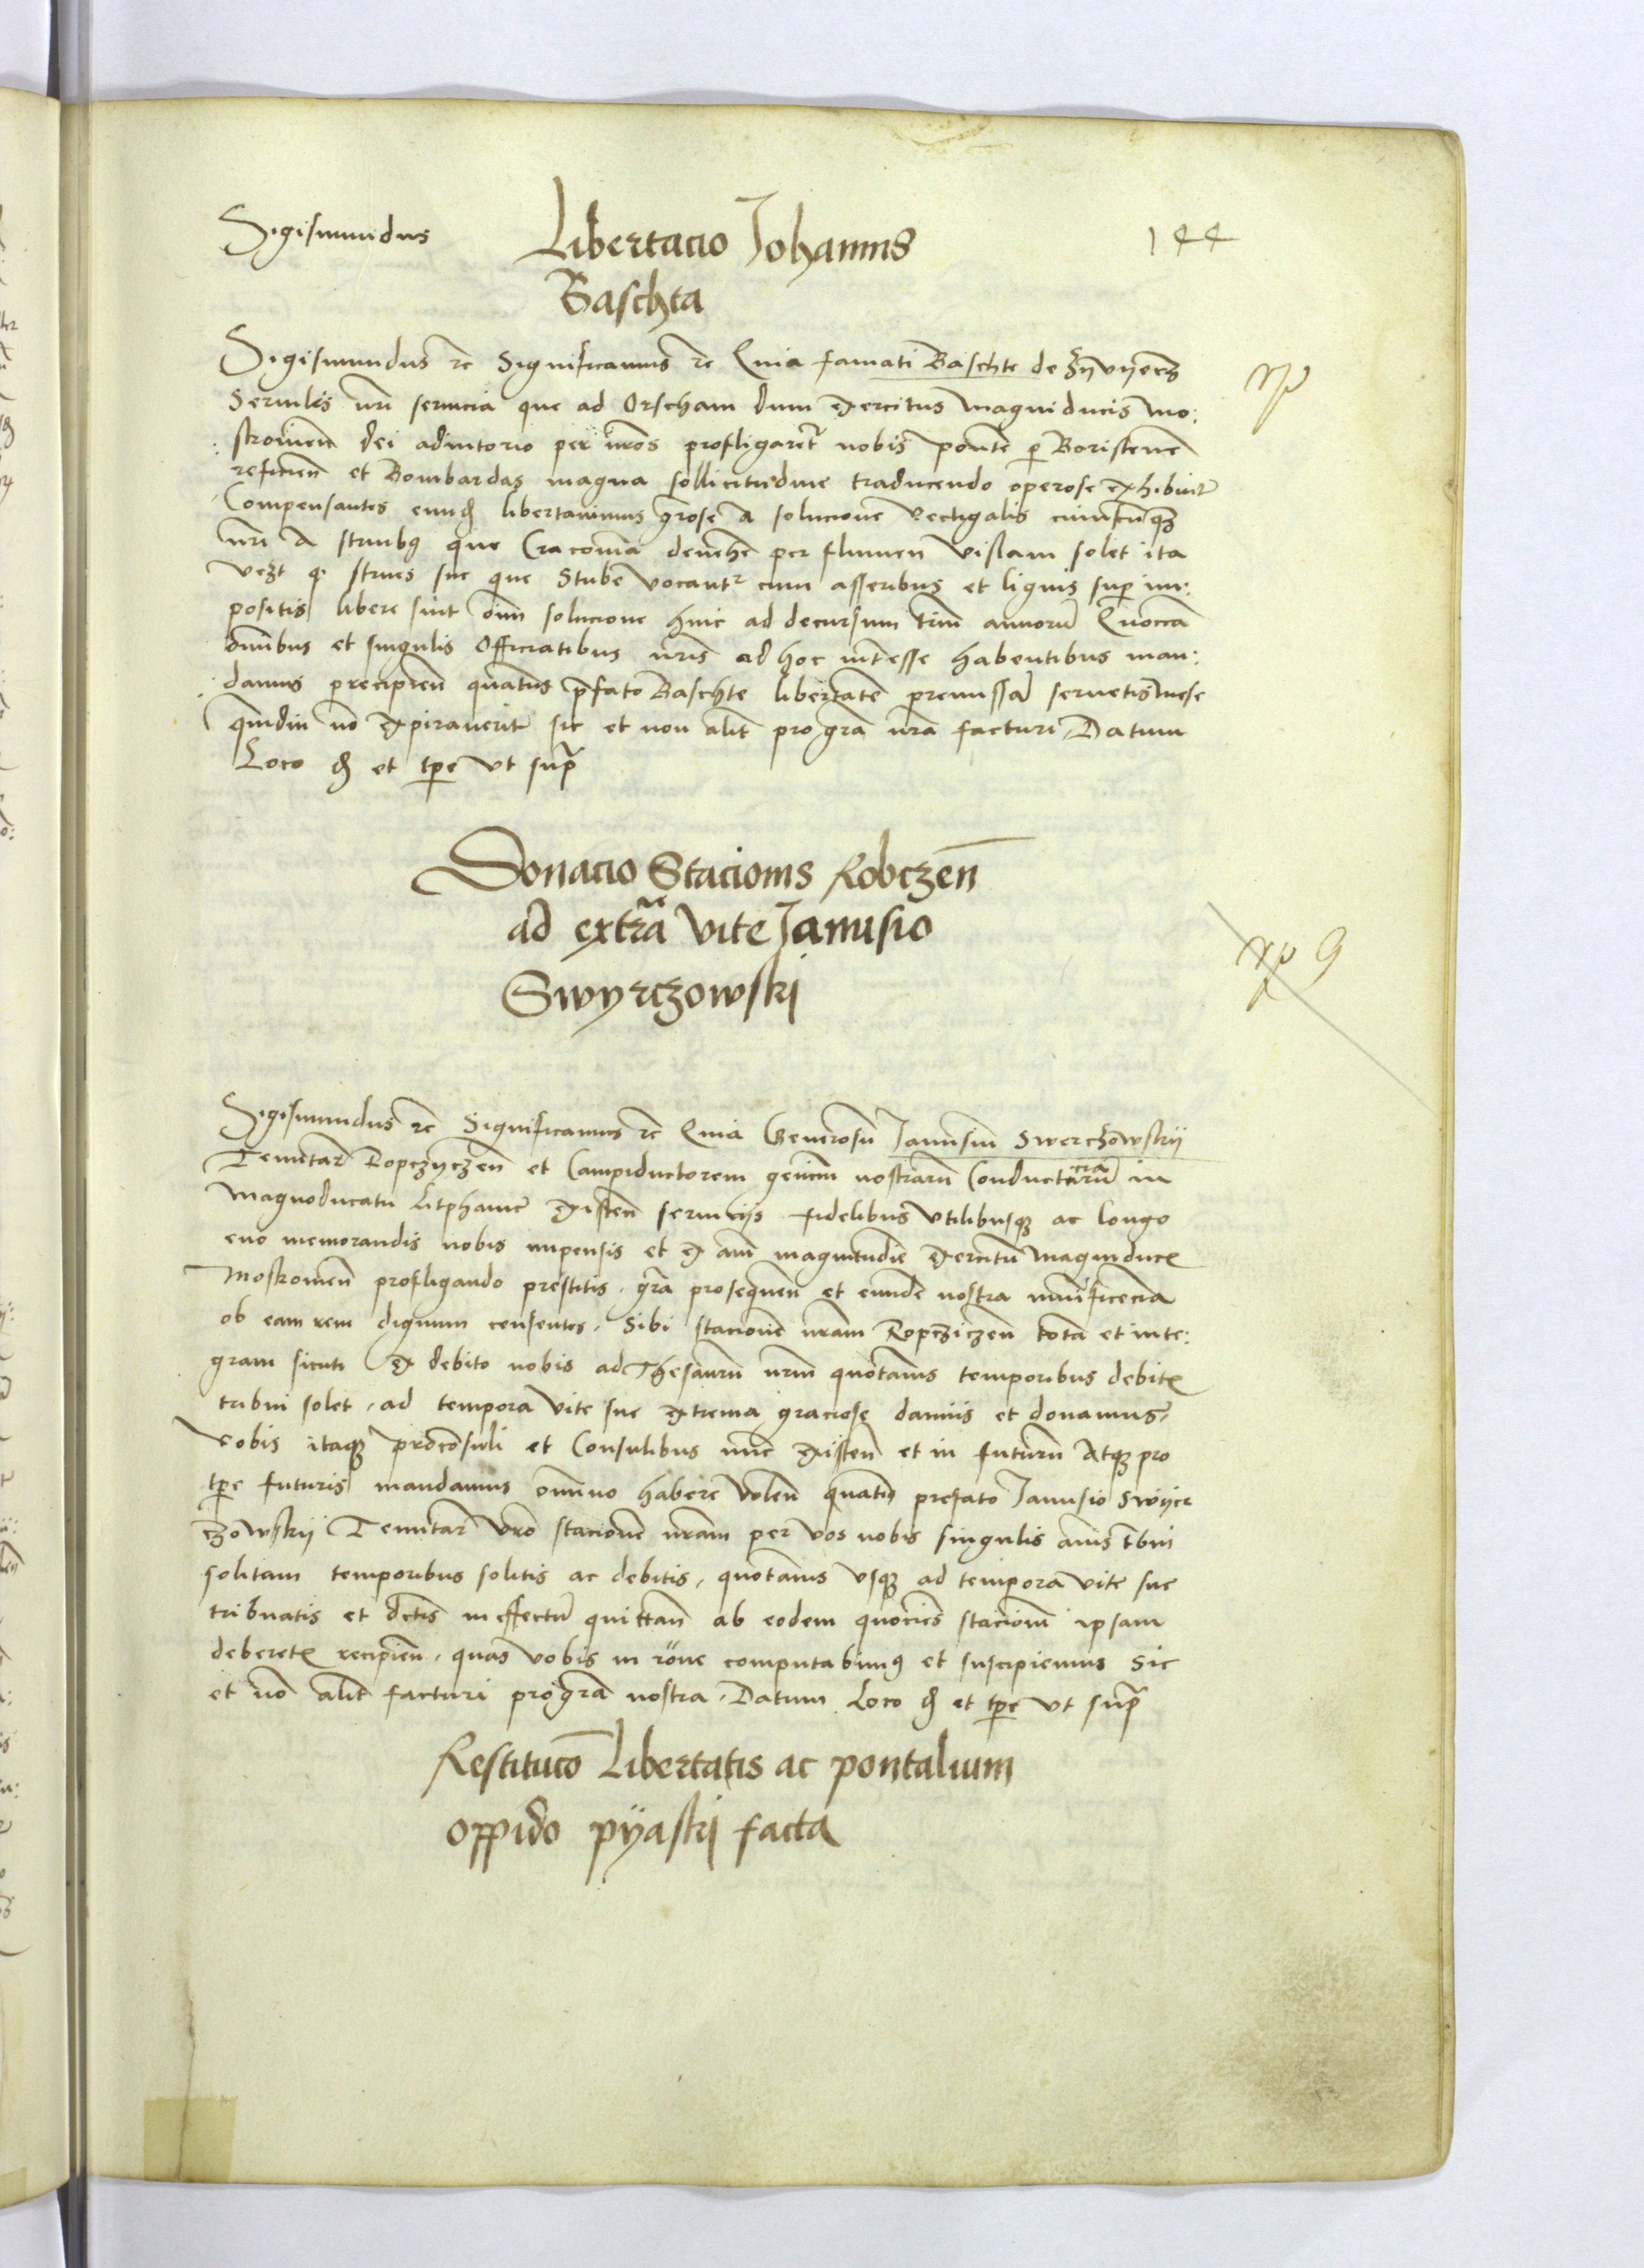 Sigismundus
Libertacio Johannis
144
Baschta
Sigismundus rc Significamus rc Quia famati Baschte de
Servulis nri servicia que ad Orscham dum Exercitus Magni ducis Mo:
scovien dei adiutorio per nros profligaret nobis ponte p Boristene
reficien et Bombardas magna sollicitudine traducendo operose exhibuit
Compensantes eundem libertavimus grose A solucione vectigalis
nri A struibus que Cracovia devehi per flumen vislam solet ita
vezt q strues sue que Stube vocantr cum asseribus et lignis super im:
positis libere sint omi solucione hinc ad decursum trium annoru Quocca
omnibus et singulis Officialibus nris ad hoc interesse habentibus man:
damus precipien quatinus prefato Baschte libertate premissa servetis
quidiu no expiraverit sic et non alit pro gra nra facturi Datum
Loco et tpe ut supra
Donacio Stacionis Robczen
ad extra vite Janusio
Swyrczowski
Sigismundus rc Significamus rc Quia Generosu Janusiu Swerczowskij
Tenutar Ropczyczen et Campiductorem gencium nostraru Conductaru in
Magnoducatu Litphanie Existen serviciis fidelibus utilibusque ac longo
evo memorandis nobis impensis et magnitudine Exercitu Magniducis
Moskovien profligando prestitis gra prosequen et eunde nostra munificencia
ob eam rem dignum censentes Sibi stacione nram Ropcziczen tota et inte:
gram sicuti ex debito nobis ad Thesauru nrm quotannis temporibus debitis
tribui solet ad tempora vite sue extrema graciose damus et donamus
Vobis itaque proconsuli et Consulibus nunc existen et in futuru Atque pro
tpe futuris mandamus omnino habere volen quatinus prefato Janusio Swijer
czowskij Tenutar vro stacione nram per vos nobis singulis annis tbui
solitam temporibus solitis ac debitis quotannis usque ad tempora vite sue
tribuatis et detis in effectu quittan ab eodem quocies stacionem ipsam
deberetis recipien quas vobis in rone computabimus et suscipiemus Sic
et no alit facturi pro gra nostra Datum Loco et tpe ut supra
Restituco Libertatis ac pontalium
oppido pyaski facta